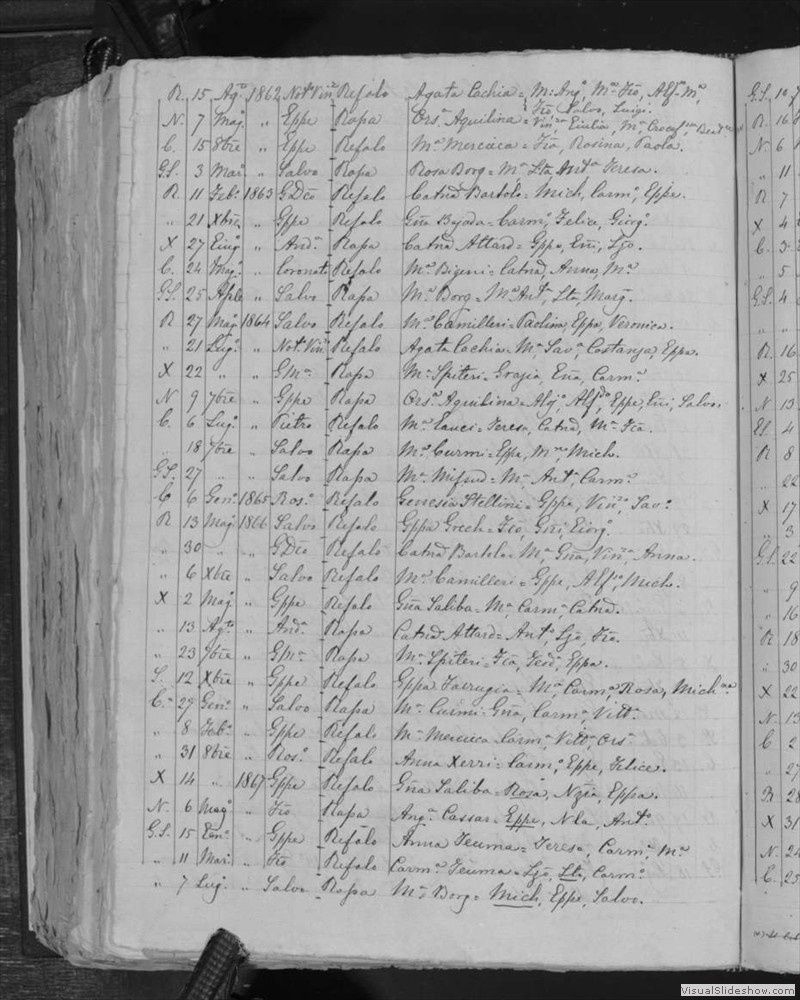 R. 15 Agto 1862 Not. Vinzo Refalo Agata Cachia = M: Ang.a, M.a Fro, Alf. M.a,
Fro Salvo, Luigi.
N. 7 Mag. " Gppe Rapa Ors.a Aquilina = Vin.za Giulia, M.a Crocef.
C. 15 8bre " Gppe Refalo M.a Mercieca = Fra, Rosina, Paola.
G.S. 3 Mar. " Salvo Rapa Rosa Borg = M.a Lta Ant.a Teresa.
R 11 Feb. 1863 G Dco Refalo Catna Bartolo = Mich, Carm. Eppe.
" 21 Xbre " Gppe Refalo Gna Bajada = Carm. Felice, Giorg.
X 27 Giug. " And. Rapa Catna Attard = Gppe, Eni, Ljo.
C. 24 Mag. " Coronat. Refalo M.a Bigeni = Catna, Anna, M.a
G.S. 25 Aple " Salvo Rapa M.a Borg = M.a Ant, Lta, Marg.
R 27 Mag. 1864 Salvo Refalo M.a Camilleri = Paolina, Eppa, Veronica.
" 21 Lug. " Not. Vinzo Refalo Agata Cachia = M.a Sav.a Costanza, Eppa.
X 22 " " G M. Rapa M.a Spiteri = Grazia, Gna, Carm.
N 9 7bre " Gppe Rapa Ors.a Aquilina = Alf, Eppe, Eni, Salvo.
C. 6 Lug. " Pietro Refalo M.a Tauci = Teresa, Catna, M.a Fra.
" 18 7bre " Salvo Rapa M.a Curmi = Eppe, M.a Mich.
G.S. 27 " " Salvo Rapa M.a Mifsud = M.a Ant. Carm.
C 6 Gen. 1865 Ros. Refalo Genesia Stellini = Gppe, Vin. Sav.
R 13 Mag. 1866 Salvo Refalo Gppa Grech = Fco, Gni, Giorg.
" 30 " " G Dco Refalo Catna Bartolo = M.a Gna, Vin. Anna.
" 6 Xbre " Salvo Refalo M.a Camilleri = Gppe, Alf. Mich.
X 2 Mag. " Gppe Refalo Gna Saliba = M.a Carm. Catna.
" 13 Agto " And. Rapa Catna Attard = Ant. Ljo, Fro.
" 23 7bre " G M. Rapa M.a Spiteri = Fca, Teod. Eppa.
S. 12 Xbre " Gppe Refalo Gppa Farrugia = M.a Carm. Rosa, Mich.na
C. 27 Gen. " Salvo Rapa M.a Curmi = Gna, Carm. Vitt.
" 8 Feb. " Gppe Refalo M.a Mercieca = Carm. Vitt. Ors.
" 31 8bre " Ros. Refalo Anna Xerri = Carm. Eppe, Felice.
X 14 " 1867 Gppe Refalo Gna Saliba = Rosa, Nzia, Eppa.
N. 6 Mag. " Fro Rapa Ang.a Cassar = Eppe, Nla, Ant.
G.S. 15 Gen. " Gppe Refalo Anna Teuma = Teresa, Carm. M.a
" 11 Mar. " Fro Refalo Carm. Teuma = Ljo, Lta, Carm.
" 7 Lug. " Salvo Rapa M.a Borg = Mich, Eppe, Salvo.
G.S. 10
R. 16
N 6
" 11
R 7
X 4
C. 3
" 5
G.S. 4
R. 16
X 25
N 13
4
R 8
" 22
X 17
" 3
G.S. 22
" 9
" 16
R 18
" 30
X 22
N. 13
C 2
" 27
R 28
X 31
N. 24
C. 25
VisualSlideshow.com